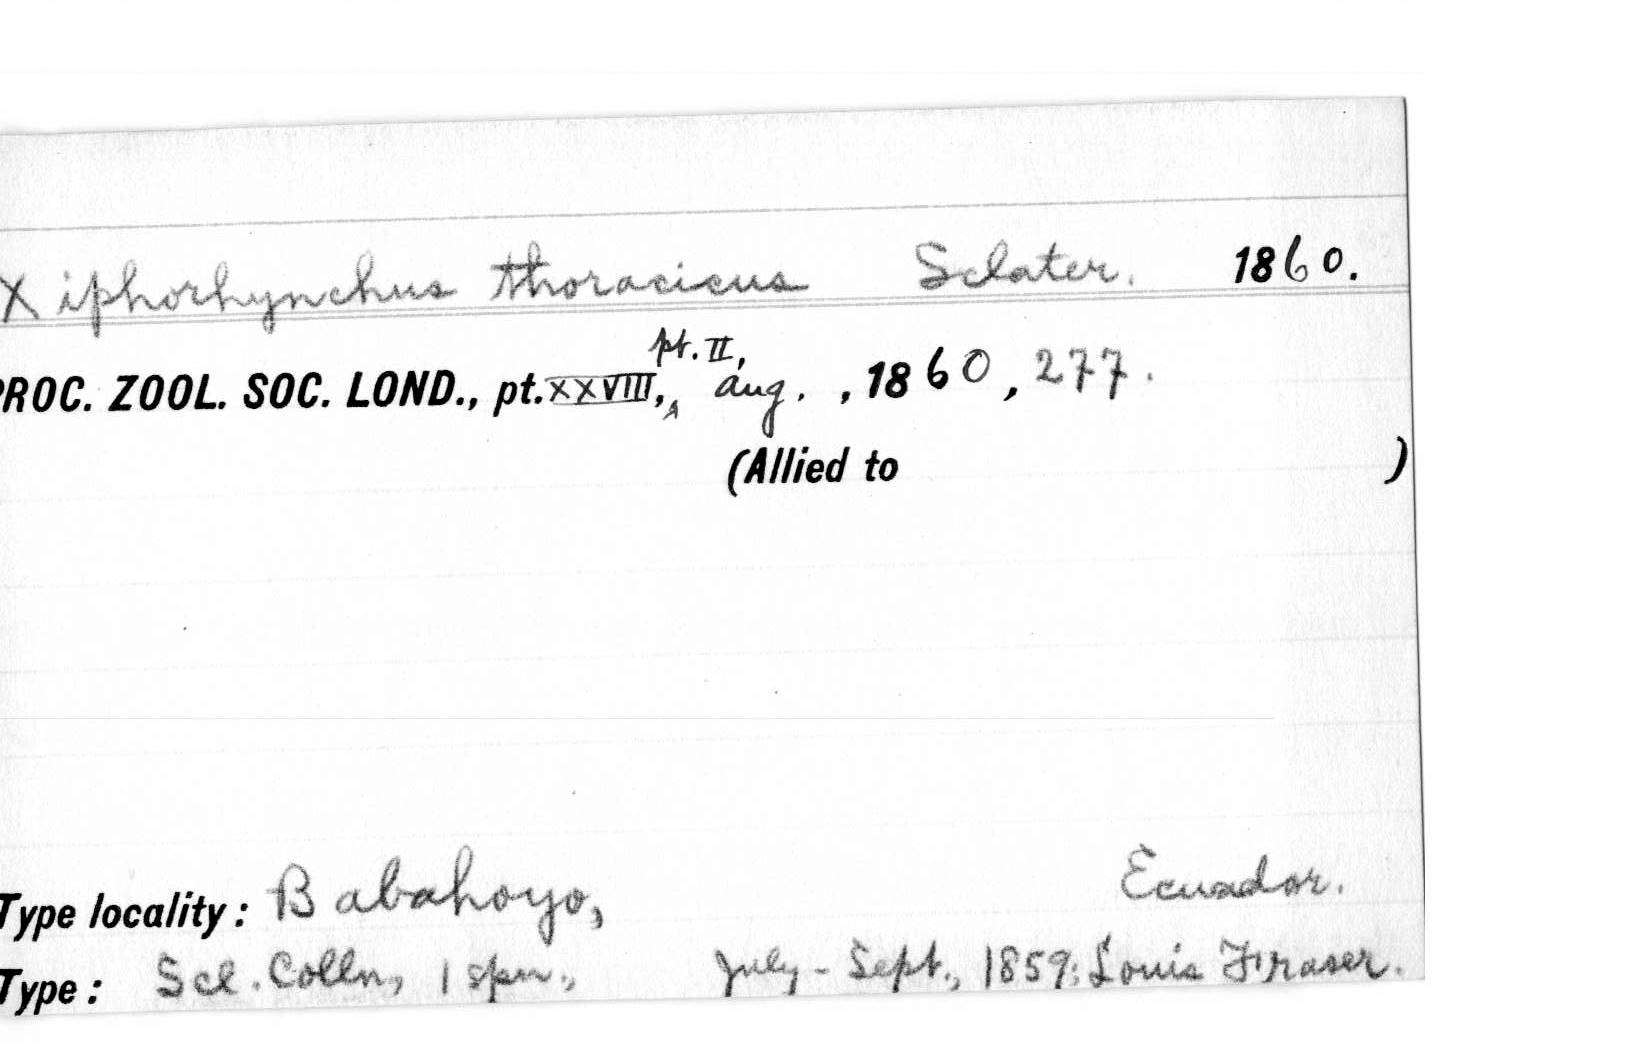 Xiphorhynchus thoracicus Sclater. 1860.
pt. II,
PROC. ZOOL. SOC. LOND., pt. XXVIII, Aug. , 1860, 277.
(Allied to )
Type locality: Babahoyo, Ecuador.
Type: Scl. Colln, 1 spm., July - Sept., 1859; Louis Fraser.